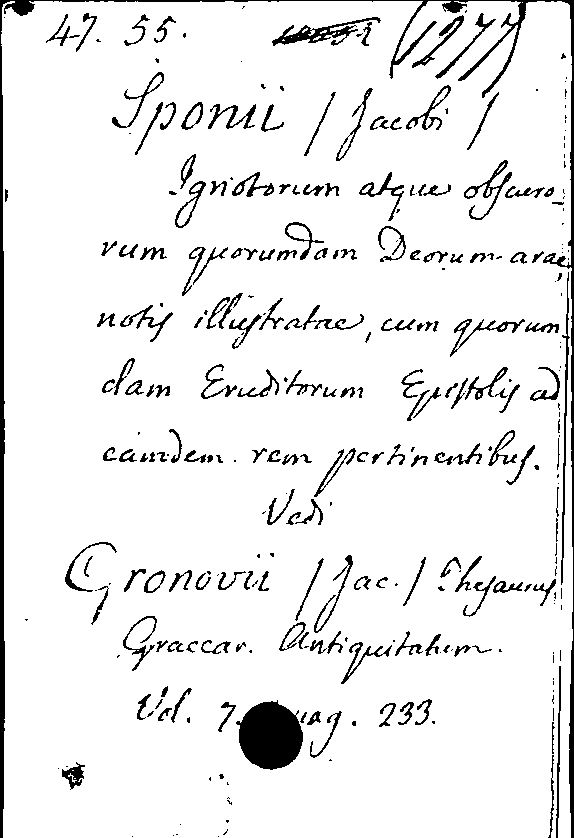 47. 55. (1277)
Sponii / Jacobi /
Ignotorum atque obscuro-
rum quorumdam Deorum arae,
notis illustratae, cum quorum-
dam Eruditorum Epistolis ad
eamdem rem pertinentibus.
Vedi
Gronovii / Jac. / Thesaurus
Graecar. Antiquitatum.
Vol. 7. pag. 233.